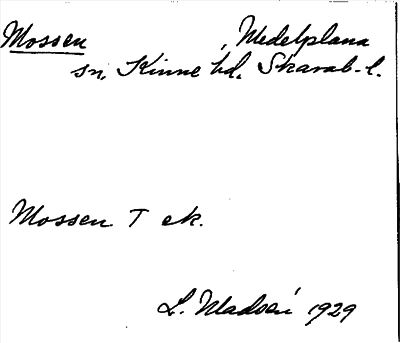 Mossen , Medelplana
sn, Kinne hd, Skarab-l.
Mossen T ek.
L. Madsén 1929